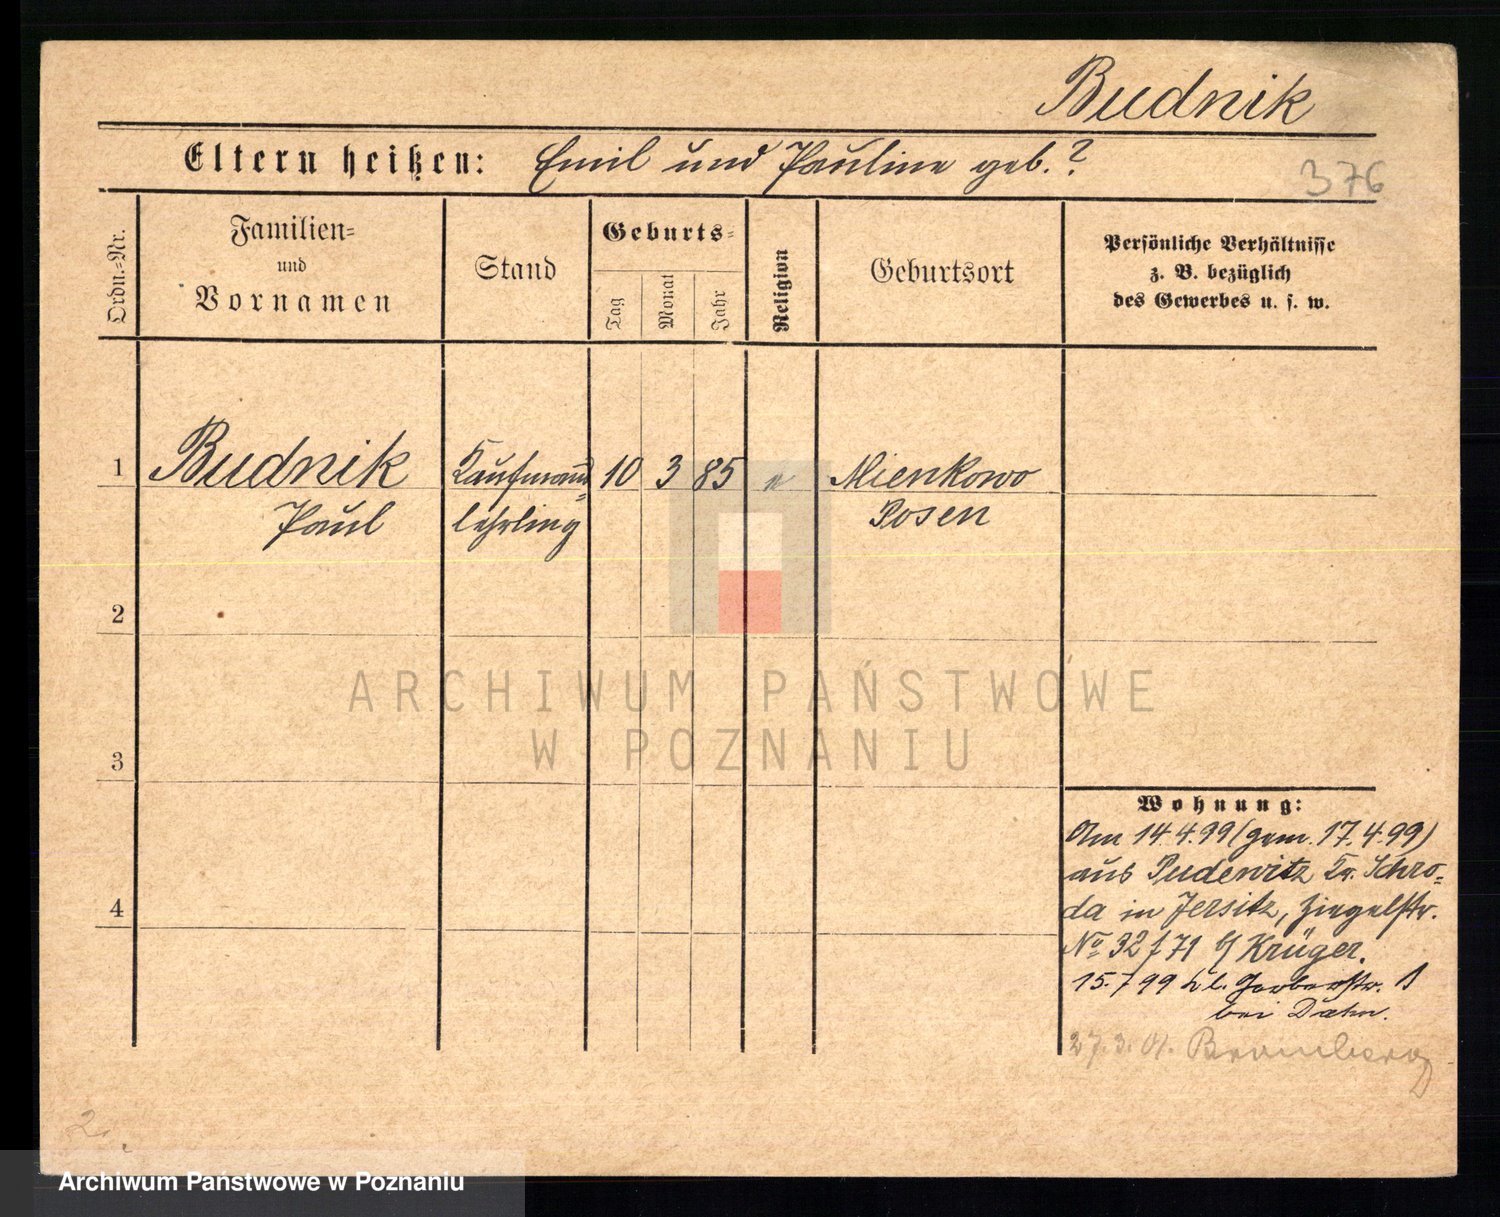 Budnik
Eltern heißen: Emil und Pauline geb. ?
376
Ordn.=Nr.
Familien=
und
Vornamen
Stand
Geburts=
Tag
Monat
Jahr
Religion
Geburtsort
Persönliche Verhältnisse
z. B. bezüglich
des Gewerbes u. s. w.
1
Budnik
Paul
Kaufmanns=
lehrling
10 3 85
Mienkowo
Posen
2
3
4
ARCHIWUM PAŃSTWOWE
W POZNANIU
Wohnung:
Am 14.4.99 (gem. 17.4.99)
aus Pudewitz Kr. Schro=
da in Jersitz, Ziegelstr.
No 32/71 b/ Krüger.
15.7 99 kl. Gerberstr. 1
bei Dahn.
27.3.01. Bromberg
2
Archiwum Państwowe w Poznaniu